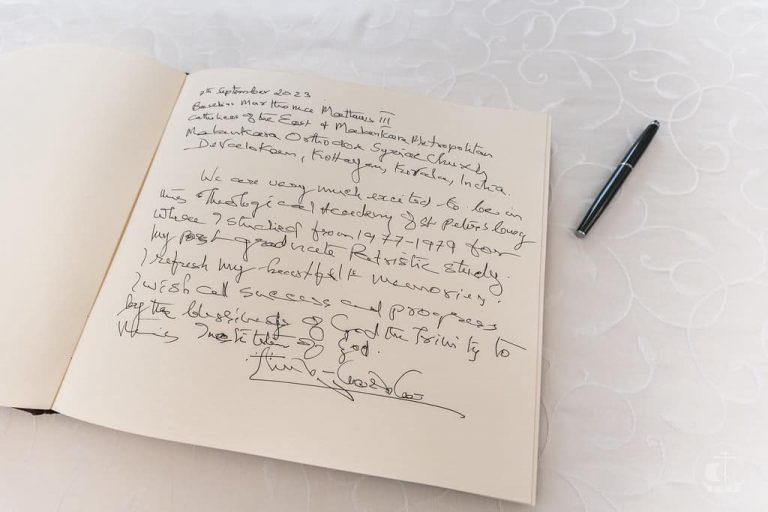 7th September 2023
Baselios Marthoma Mathews III
Catholicos of the East & Malankara Metropolitan
Malankara Orthodox Syrian Church
Devalokam, Kottayam, Kerala, India.
We are very much excited to be in
this Theological Academy of St Petersburg
where I studied from 1977-1979 for
my post graduate Patristic study.
I refresh my beautiful memories.
I wish all success and progress
by the blessings of God the Trinity to
this Institution of God.